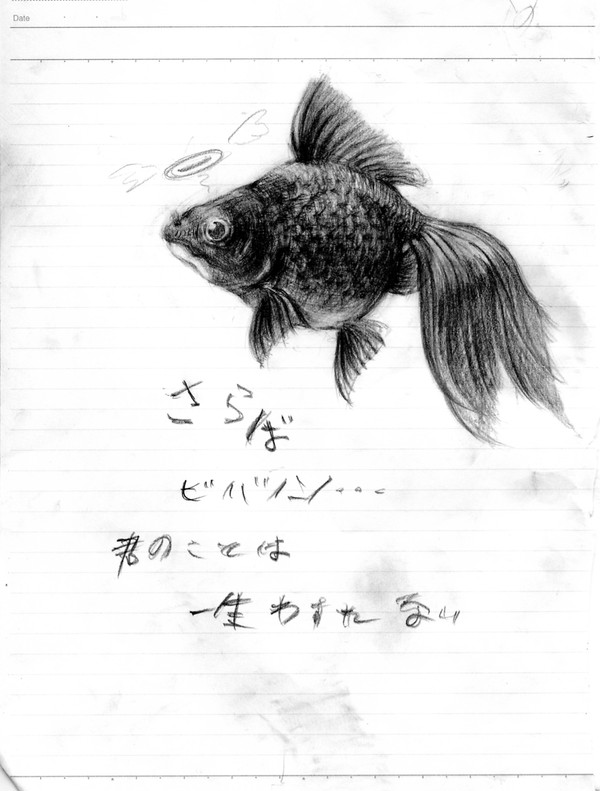 Date
さらば
ビバノン・・・
君のことは
一生わすれない